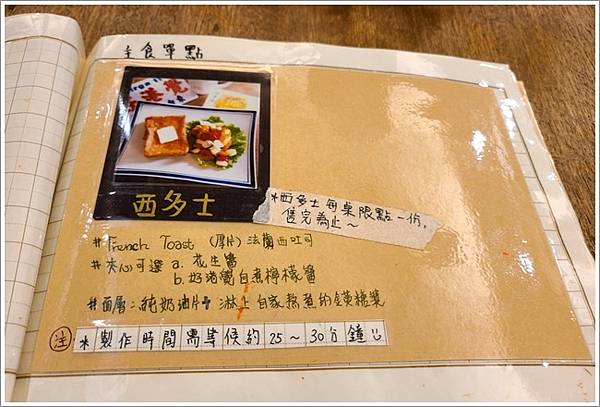 主食單點
西多士
*西多士每桌限點一份,
售完為止~
# French Toast (厚片) 法蘭西吐司
# 夾心可選 a. 花生醬
b. 奶港覺自煮檸檬醬
# 面層:純奶油片 淋上自家熬煮的楓糖漿
注 *製作時間需等候約25~30分鐘